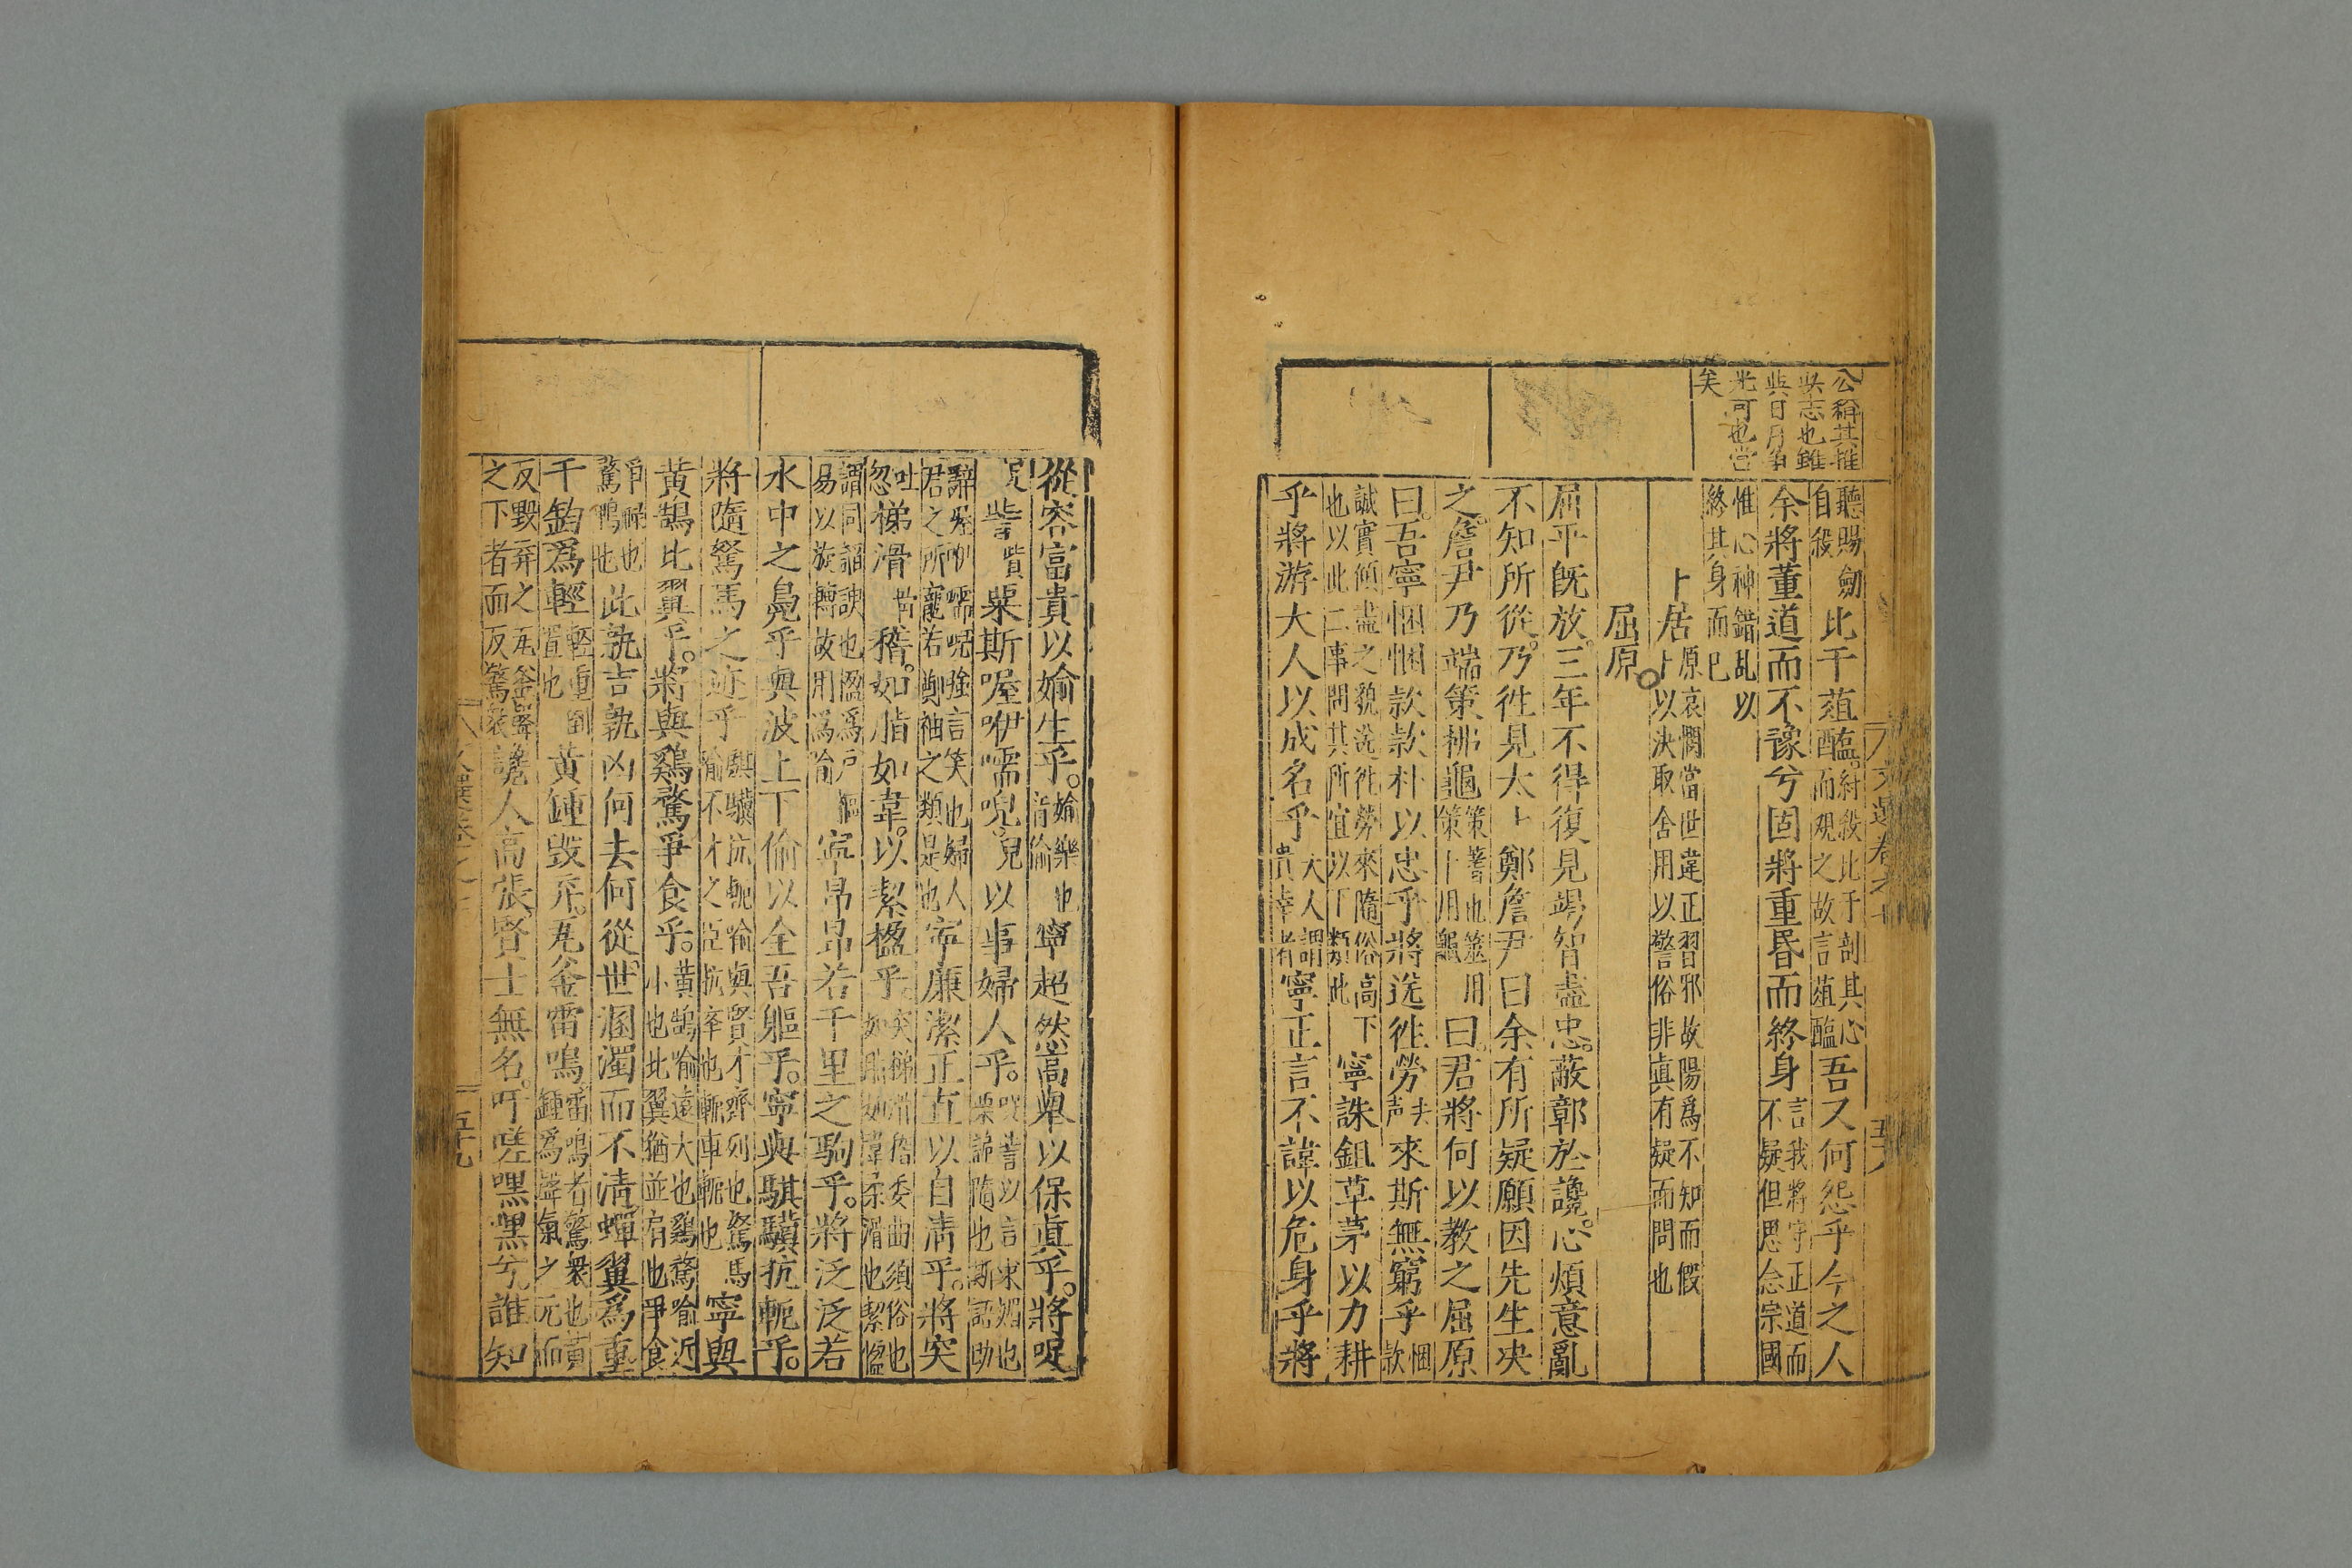 公稱其推
此志也雖
與日月爭
光可也當
矣
聽賜劒
自殺
比干葅醢。
紂殺比干剖其心
而觀之故言葅醢
吾又何怨乎今之人
余將董道而不豫兮固將重昏而終身
言我將守正道而
不疑但思念宗國
惟心神錯乱以
終其身而已
卜居
原哀憫當世違正習邪故陽爲不知而假
卜以決取舍用以警俗非眞有疑而問也
屈原。
屈平旣放。三年不得復見竭智盡忠。蔽鄣於讒。心煩意亂
不知所從。乃往見太卜鄭詹尹曰余有所疑願因先生决
之。詹尹乃端策拂龜
策蓍也筮用
策卜用龜
曰。君將何以教之屈原
曰。吾寧悃悃款款朴以忠乎將送往勞
去
声
來斯無窮乎
悃
款
誠實傾盡之貌送往勞來隨俗高下
也以此二事問其所宜以下類此
寧誅鉏草茅以力耕
乎將游大人以成名乎
大人謂
貴幸者
寧正言不諱以危身乎將
從容富貴以媮生乎。
媮樂也
音偷
寧超然高舉以保眞乎。將哫
訾
貲
粟斯喔咿嚅唲。
兒
以事婦人乎。
哫訾以言求媚也
粟諦隨也斯語助
辭喔咿嚅唲強言笑也婦人
君之所寵若鄭袖之類是也
寧廉潔正直以自清乎。將突
吐
忽
梯滑
骨
稽。如脂如韋。以絜楹乎
突梯滑稽委曲須俗也
如脂如韋柔滑也絜楹
謂同諂諛也楹爲戶樞
易以旋轉故用爲喻
寧昂昂若千里之駒乎。將泛泛若
水中之鳧乎與波上下偷以全吾軀乎。寧與騏驥抗軛乎。
將隨駑馬之迹乎
騏驥抗軛喻與賢才齊列也駑馬
喻不才之臣抗舉也軛車軛也
寧與
黃鵠比翼乎。將與鷄鶩爭食乎。
黃鵠喻遠大也鷄鶩喻近
小也比翼猶並肩也爭食
爭祿也
鶩鴨也
此孰吉孰凶何去何從。世溷濁而不清。蟬翼爲重
千鈞爲輕
輕重倒
置也
黃鍾毀棄。瓦釜雷鳴
雷鳴者驚衆也黃
鍾爲聲氣之元而
反毀弃之瓦釜聲
之下者而反驚衆
讒人高張。賢士無名。吁嗟嘿嘿兮誰知
文選卷之十
五十八
五十九